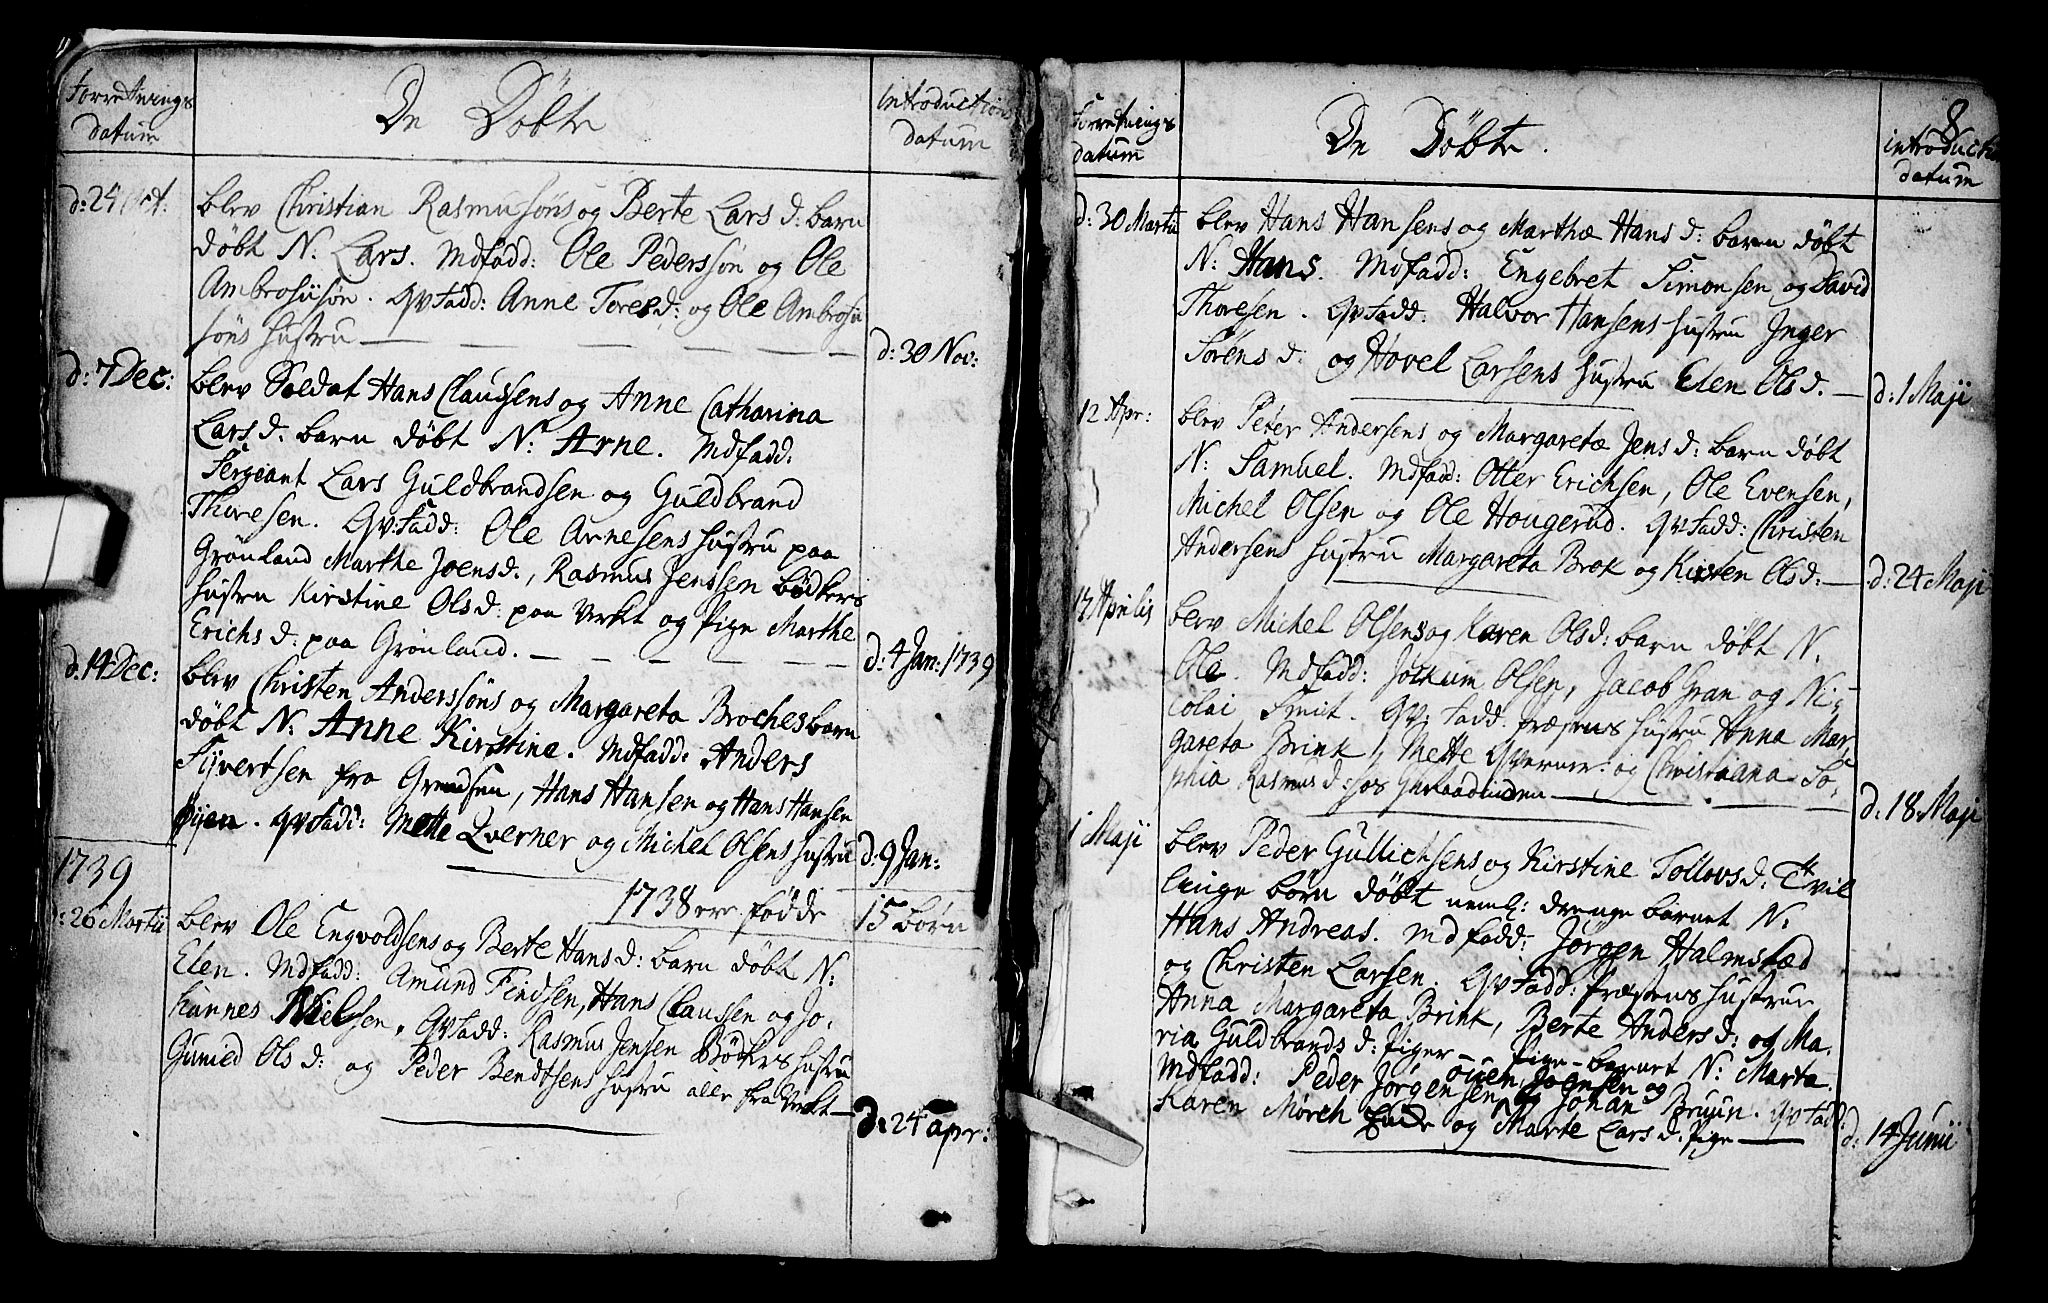 Forretnings
datum
De Döbte
Introductions
datum
d: 24 Oct:
blev Christian Rasmusöns og Berte Lars d: barn
döbt N: Lars. Mdfadd: Ole Pederssön og Ole
Ambrosiisön. Qvfadd: Anne Tores d: og Ole Ambrosii
söns hustru
d: 30 Nov:
d: 7 Dec:
blev Soldat Hans Claussens og Anne Catharina
Lars d. barn döbt N: Arne. Mdfadd:
Sergeant Lars Guldbrandsen og Guldbrand
Thoresen. Qvfadd: Ole Arnesens hustru paa
Grönland Marthe Joensd., Rasmus Jenssen bödkers
hustru Kirstine Olsd: paa Verket og Pige Marthe
Erichs d: paa Grönland.
d: 4 Jan: 1739
d. 14 Dec:
blev Christen Anderssöns og Margareta Broches barn
döbt N: Anne Kirstine. Mdfadd: Anders
Syvertsen fra Grendsen, Hans Hansen og Hans Hansen
Qvfadd: Mette Qverner og Michel Olsens hustru
d: 9 Jan:
1738 ere födde
15 börn
1739
: 26 Martii
blev Ole Engvoldsens og Berte Hans d: barn döbt N:
Elen. Mdfadd: Amund Findsen, Hans Claussen og Jo-
hannes Nielsen. Qvfadd: Rasmus Jensen Bödkers hustru
Gunied Ols d: og Peder Bendtsens hustru alle fra Verket
d: 24 apr:
8
Forretnings
datum
De Döbte.
introductions
datum
d: 30 Martii
blev Hans Hansens og Marthæ Hans d: barn döbt
N: Hans. Mdfadd: Engebret Simonsen og David
Thoresen. Qvfadd: Halvor Hansens hustru Inger
Sörens d: og Hovel Larsens hustru Elen Ols d.
d: 1 Maji
12 Apr:
blev Peter Andersens og Margaretæ Jens d: barn döbt
N: Samuel. Mdfadd: Otter Erichsen, Ole Evensen,
Michel Olsen og Ole Hougerud. Qvfadd: Christen
Andersens hustru Margareta Brok og Kirsten Olsd:
d: 24 Maji
17 Aprilis
blev Michel Olsens og Karen Olsd: barn döbt N:
Ole. Mdfadd: Jockum Olsen, Jacob Gran og Ni-
colai Smit. Qv: fadd. præstens hustru Anna Mar-
gareta Brink, Mette Qverner: og Christiana So-
phia Rasmus d: hos
d: 18 Maji
1 Maji
blev Peder Gullichsens og Kirstine Tollovs d: Tvil
linge börn döbt neml: drenge barnet N:
Hans Andreas. Mdfadd: Jörgen Halmstæd
og Christen Larsen. Qvfadd: Præstens hustrue
Anna Margareta Brink, Berte Anders d: og Ma-
ria Guldbrands d: piger – pige-barnet N: Marta.
Mdfadd: Peder Jörgensen, ouen Joensen og Johan Bruun. Qvfadd:
Karen Mörch og Marte Lars d. pige
d: 14 Junii